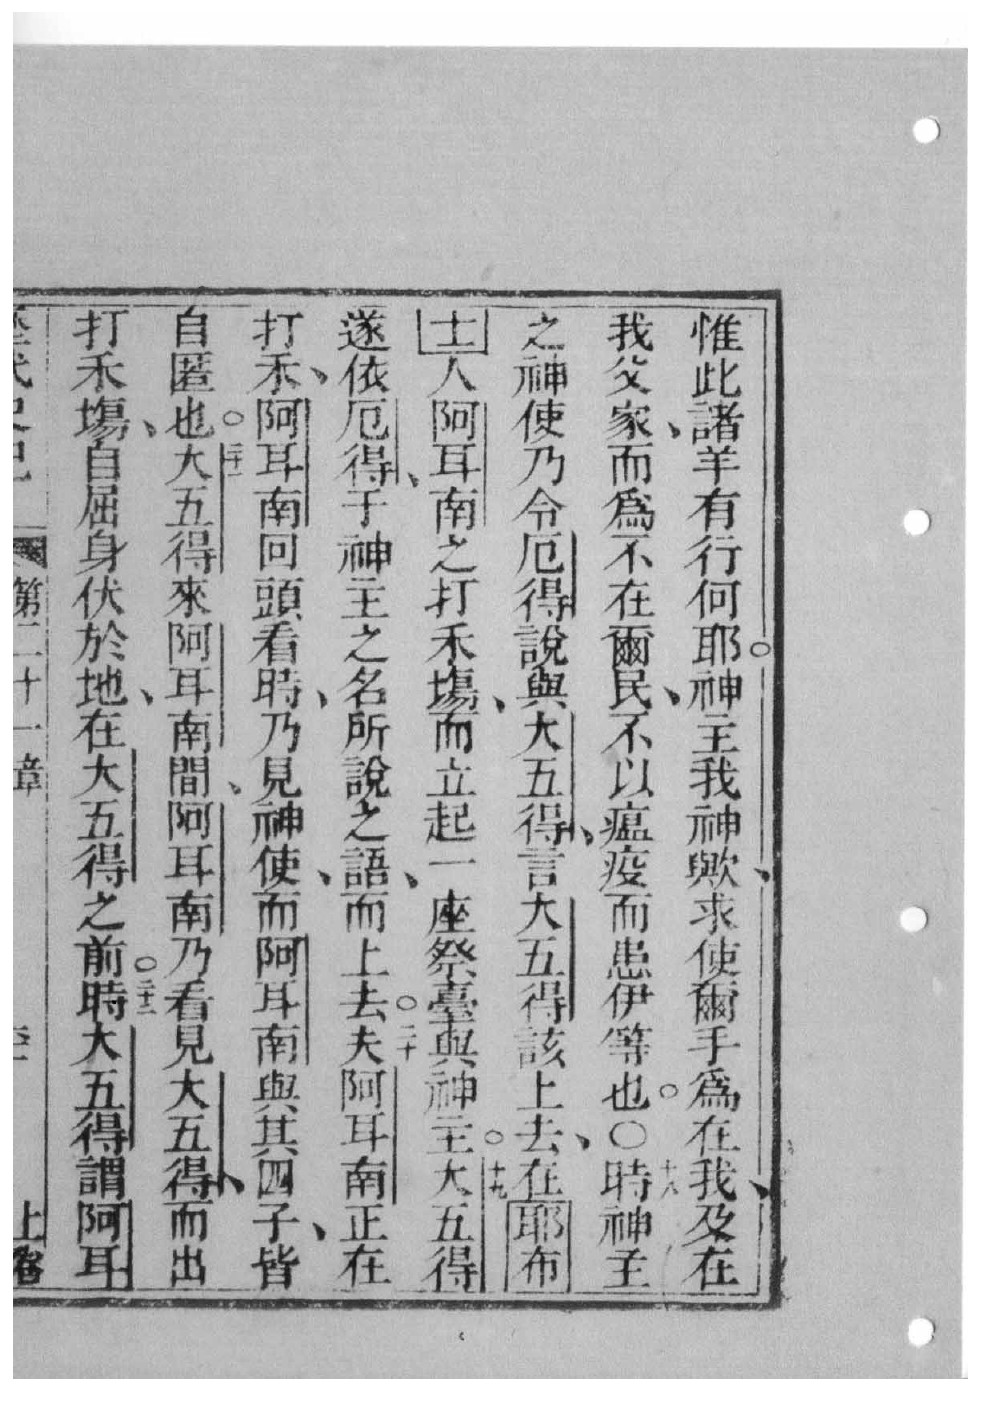 惟此諸羊有行何耶神主我神歟求使爾手爲在我及在
我父家而爲不在爾民不以瘟疫而患伊等也○時神主十八
之神使乃令厄得說與大五得言大五得該上去在耶布
士人阿耳南之打禾塲而立起一座祭臺與神主大五得十九
遂依厄得于神主之名所說之語而上去夫阿耳南正在二十
打禾阿耳南回頭看時乃見神使而阿耳南與其四子皆
自匿也大五得來阿耳南間阿耳南乃看見大五得而出二十一
打禾塲自屈身伏於地在大五得之前時大五得謂阿耳二十二
歷代史記 第二十一章 上卷